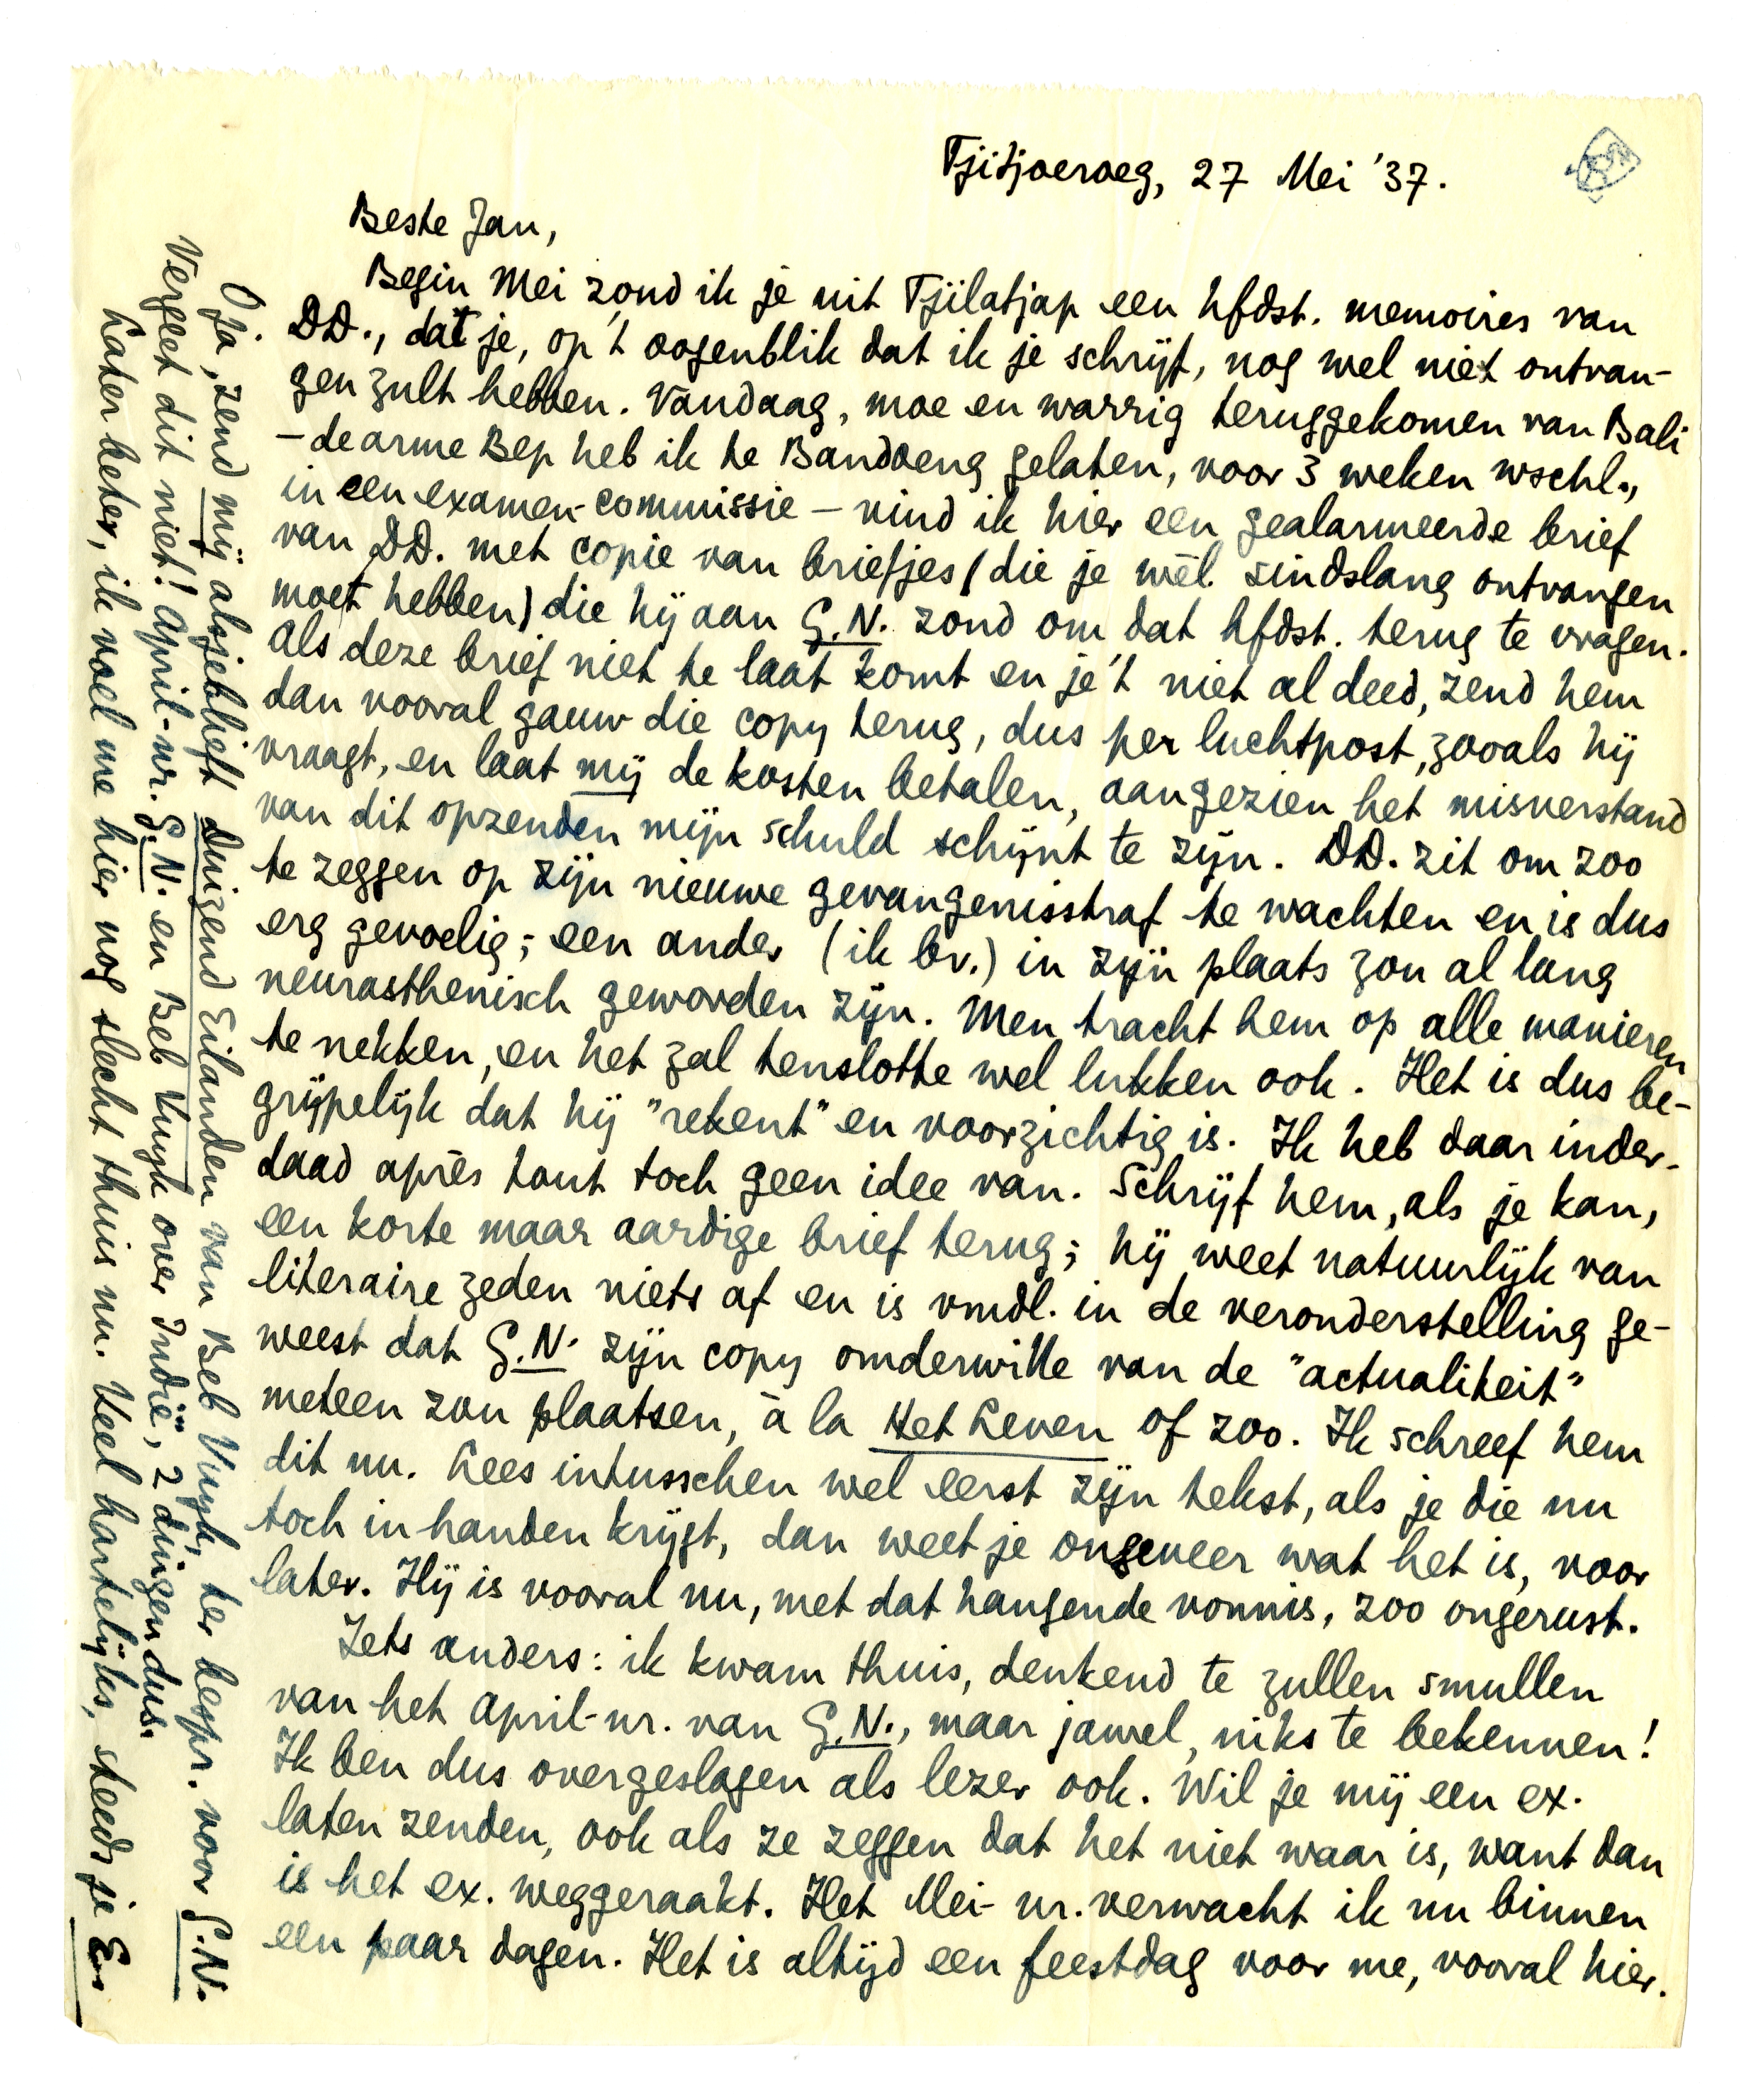 Tjitjoeroeg, 27 Mei '37.
Beste Jan,
Begin Mei zond ik je uit Tjilatjap een hfdst. memoires van
DD., dat je, op 't oogenblik dat ik je schrijf, nog wel niet ontvan-
gen zult hebben. Vandaag, moe en warrig teruggekomen van Bali
– de arme Bep heb ik te Bandoeng gelaten, voor 3 weken wschl.,
in een examen-commissie – vind ik hier een gealarmeerde brief
van DD. met copie van briefjes (die je wèl sindslang ontvangen
moet hebben) die hij aan G.N. zond om dat hfdst. terug te vragen.
Als deze brief niet te laat komt en je 't niet al deed, zend hem
dan vooral gauw die copy terug, dus per luchtpost, zooals hij
vraagt, en laat mij de kosten betalen, aangezien het misverstand
van dit opzenden mijn schuld schijnt te zijn. DD. zit om zoo
te zeggen op zijn nieuwe gevangenisstraf te wachten en is dus
erg gevoelig; een ander (ik bv.) in zijn plaats zou al lang
neurasthenisch geworden zijn. Men tracht hem op alle manieren
te nekken, en het zal tenslotte wel lukken ook. Het is dus be-
grijpelijk dat hij "rekent" en voorzichtig is. Ik heb daar inder-
daad après tout toch geen idee van. Schrijf hem, als je kan,
een korte maar aardige brief terug; hij weet natuurlijk van
literaire zeden niets af en is vmdl. in de veronderstelling ge-
weest dat G.N. zijn copy omderwille van de "actualiteit"
meteen zou plaatsen, à la Het Leven of zoo. Ik schreef hem
dit nu. Lees intusschen wel eerst zijn tekst, als je die nu
toch in handen krijgt, dan weet je ongeveer wat het is, voor
later. Hij is vooral nu, met dat hangende vonnis, zoo ongerust.
Iets anders: ik kwam thuis, denkend te zullen smullen
van het April-nr. van G.N., maar jawel, niks te bekennen!
Ik ben dus overgeslagen als lezer ook. Wil je mij een ex.
laten zenden, ook als ze zeggen dat het niet waar is, want dan
is het ex. weggeraakt. Het Mei-nr. verwacht ik nu binnen
een paar dagen. Het is altijd een feestdag voor me, vooral hier.
O ja, zend mij alsjeblieft Duizend Eilanden van Beb Vuyk, ter bespr. voor G.N.
Vergeet dit niet! April-nr. G.N. en Beb Vuyk over Indië, 2 dingen dus.
Later beter, ik voel me hier nog slecht thuis nu. Veel hartelijks, steeds je E.